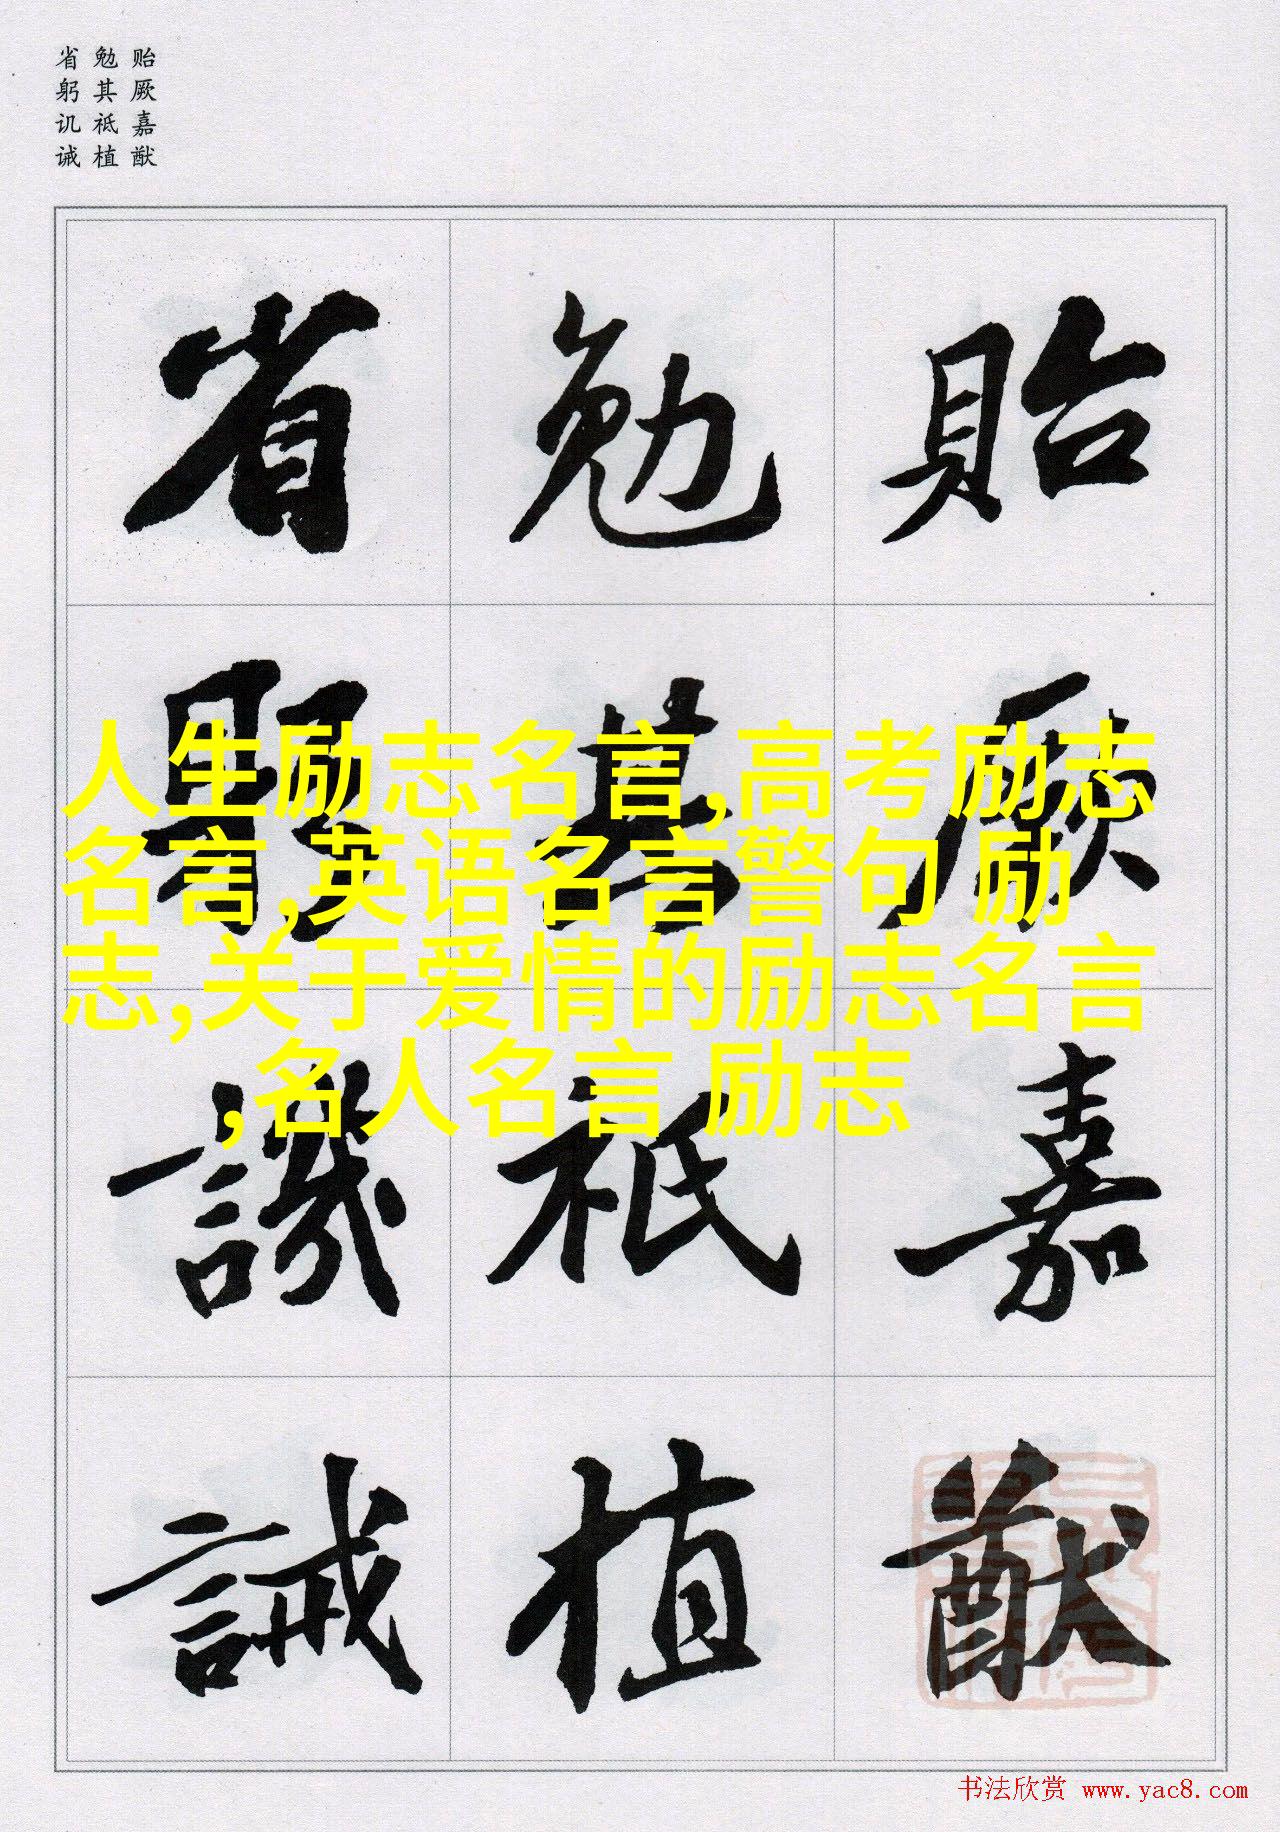 贻厥嘉猷
勉其祗植
省躬讥诫
貽厥嘉猷
勉其祗植
省躬譏誡
人生励志名言,高考励志
名言,英语名言警句 励
志,关于爱情的励志名言
,名人名言 励志
书法欣赏 www.yac8.com